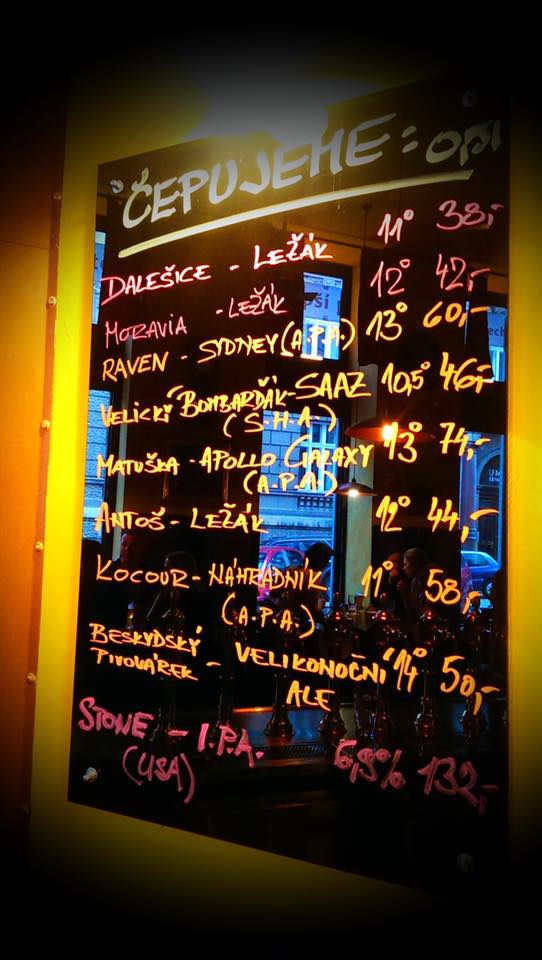 ČEPUJEME: 0,5l
DALEŠICE - LEŽÁK 11° 38,-
MORAVIA - LEŽÁK 12° 42,-
RAVEN - SYDNEY (A.P.A.) 13° 60,-
VELICKÝ BOMBARĎÁK - SAAZ 10,5° 46,-
(S.H.A.)
MATUŠKA - APOLLO GALAXY 13° 74,-
(A.P.A)
ANTOŠ - LEŽÁK 12° 44,-
KOCOUR - NÁHRADNÍK 11° 58,-
(A.P.A.)
BESKYDSKÝ
PIVOVÁREK - VELIKONOČNÍ 14° 50,-
ALE
STONE - I.P.A.
(USA) 6,9% 132,-